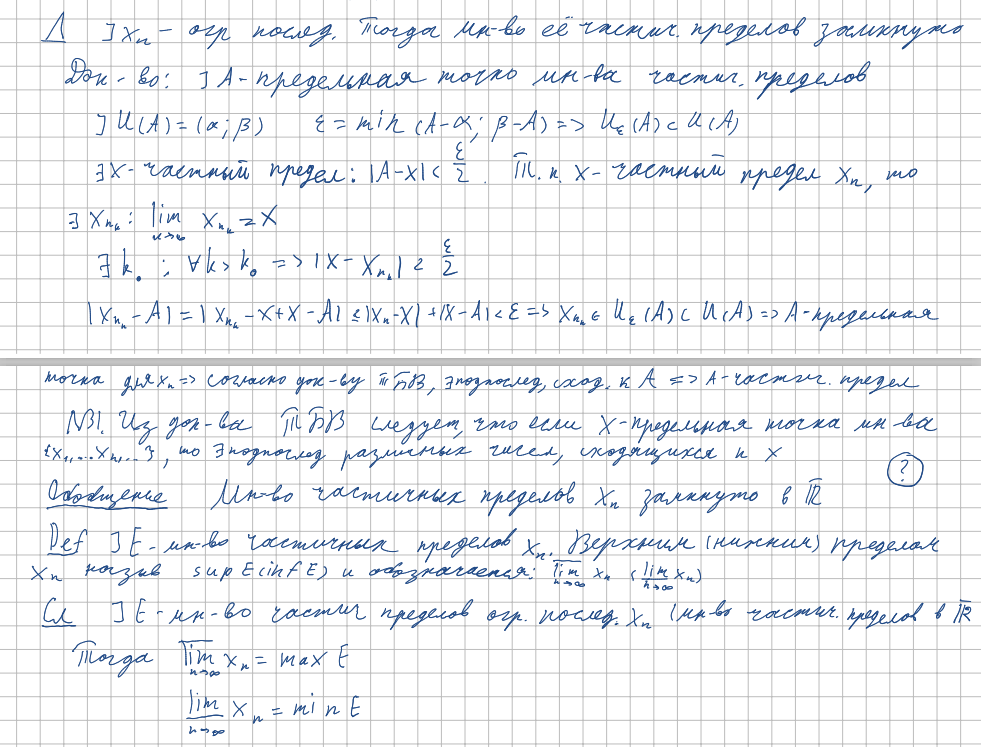 Л ∃ xₙ - огр послед. Тогда мн-во её частич. пределов замкнуто
Док-во: ∃ A-предельная точка мн-ва частич. пределов
∃ U(A) = (α; β) ε = min (A-α; β-A) => Uε(A) ⊂ U(A)
∃X-частный предел: |A-X| < ε/2. Т.к. X-частный предел xₙ, то
∃ xₙₖ: lim xₙₖ = X
k→∞
∃ k₀ : ∀k > k₀ => |X - xₙₖ| < ε/2
|xₙₖ - A| = |xₙₖ - X + X - A| ≤ |xₙ - X| + |X - A| < ε => xₙₖ ∈ Uε(A) ⊂ U(A) => A-предельная
точка для xₙ => согласно док-ву ТБВ, ∃ подпослед, сход. к A => A-частич. предел
NB!. Из док-ва ТБВ следует, что если X-предельная точка мн-ва
{x₁,...xₙ,...}, то ∃ подпослед различных чисел, сходящихся к X
?
Обобщение Мн-во частичных пределов xₙ замкнуто в R̅
Def ∃ E-мн-во частичных пределов xₙ. Верхним (нижним) пределом
xₙ назыв sup E (inf E) и обозначается: l̅i̅m̅ xₙ (l̲i̲m̲ xₙ)
n→∞ n→∞
Сл ∃ E-мн-во частич пределов огр. послед. xₙ (мн-во частич. пределов в R̅
Тогда l̅i̅m̅ xₙ = max E
n→∞
l̲i̲m̲ xₙ = min E
n→∞